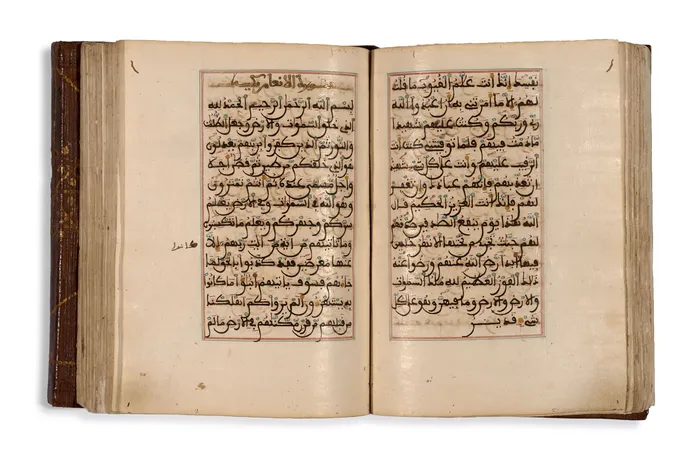 نفسك إنك أنت علم الغيوب ما قلت
لهم إلا ما أمرتني به أن اعبدوا الله
ربي وربكم وكنت عليهم شهيدا
ما دمت فيهم فلما توفيتني كنت أنت
الرقيب عليهم وأنت على كل شيء شهيد إن
تعذبهم فإنهم عبادك وإن تغفر
لهم فإنك أنت العزيز الحكيم قال
الله هذا يوم ينفع الصدقين صدقهم
لهم جنت تجري من تحتها الانهر خلدين
فيها أبدا رضي الله عنهم ورضوا عنه
ذلك الفوز العظيم لله ملك السموت
والارض وما فيهن وهو على كل
شيء قدير
سورة الانعام مكية
بسم الله الرحمن الرحيم الحمد لله
الذي خلق السموت والارض وجعل الظلمت
والنور ثم الذين كفروا بربهم يعدلون
هو الذي خلقكم من طين ثم قضى أجلا
وأجل مسمى عنده ثم أنتم تمترون
وهو الله في السموت وفي الارض يعلم
سركم وجهركم ويعلم ما تكسبون
وما تأتيهم من آية من آيت ربهم إلا
كانوا
عنها معرضين فقد كذبوا بالحق لما
جاءهم فسوف يأتيهم أنبؤا ما كانوا
به يستهزءون ألم يروا كم أهلكنا
من قبلهم من قرن مكنهم في الارض ما لم